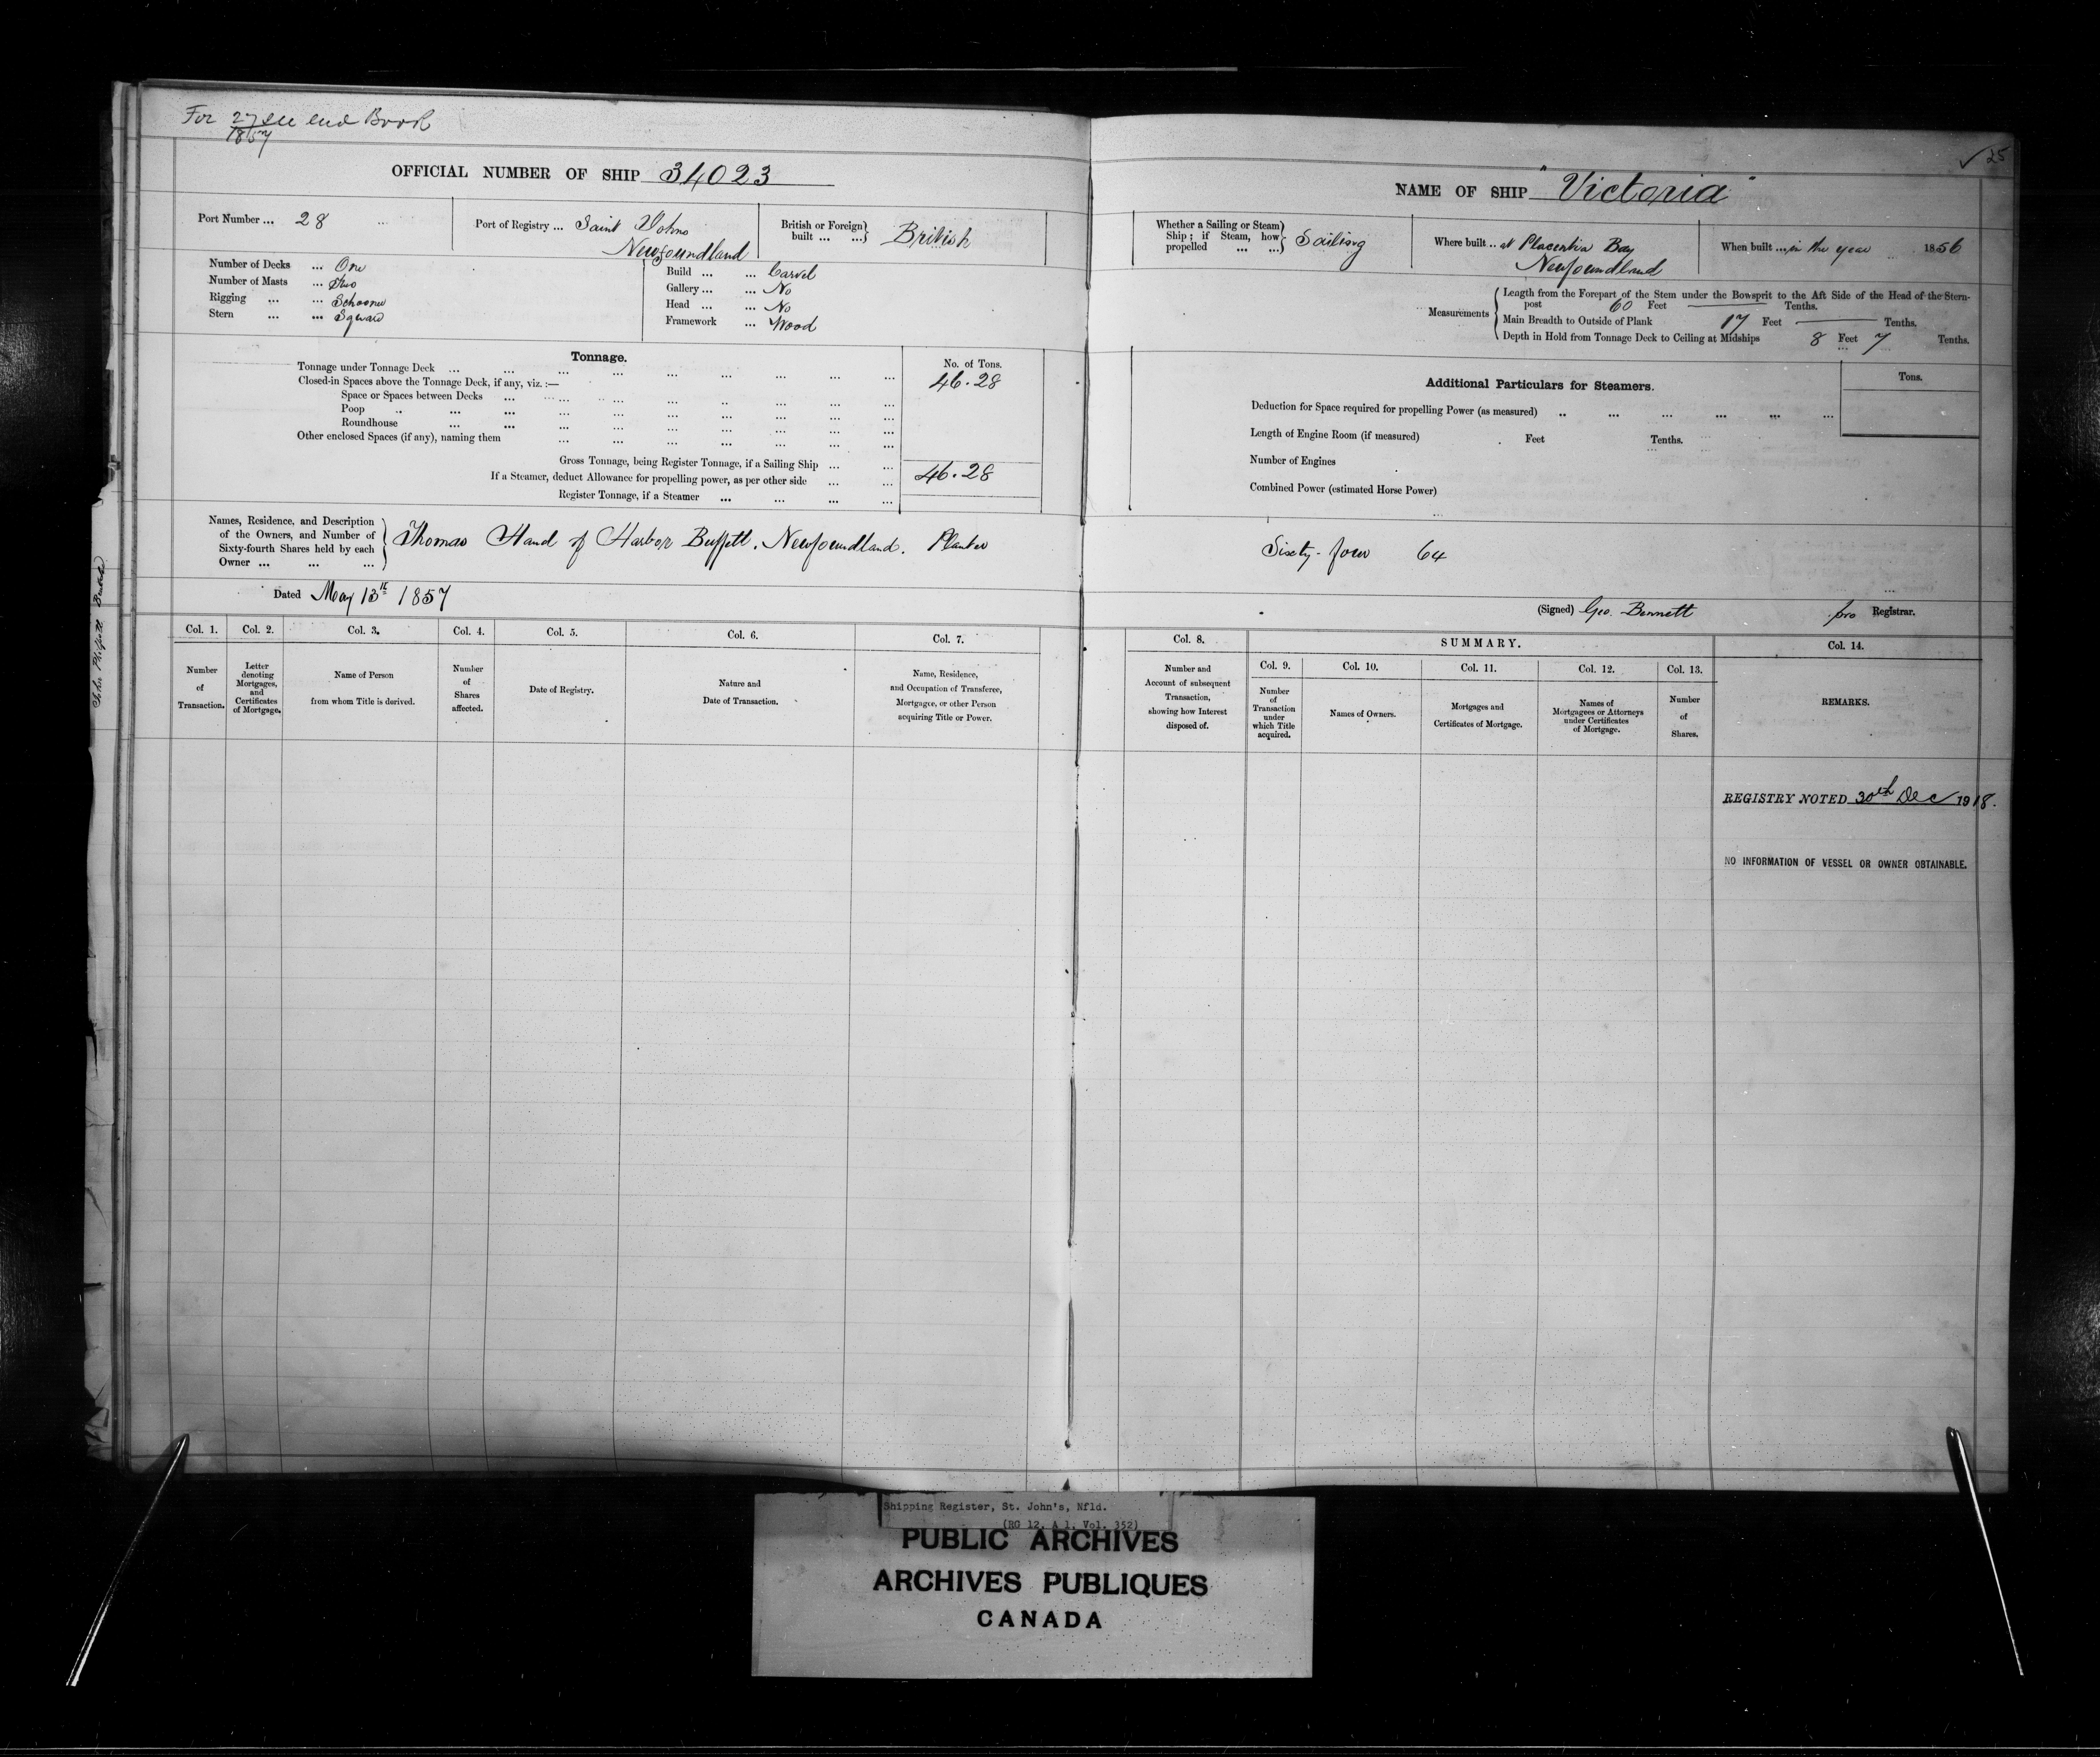 For 27/1857 see end Book
OFFICIAL NUMBER OF SHIP 34023
Port Number ... 28
Port of Registry ... Saint Johns
Newfoundland
British or Foreign
built ... ...} British
Number of Decks ... One
Number of Masts ... Two
Rigging ... ... Schooner
Stern ... ... Square
Build ... ... Carvel
Gallery ... ... No
Head ... ... No
Framework ... Wood
Tonnage.
No. of Tons.
Tonnage under Tonnage Deck ... ... ... ... ... ... ... ... ... 46.28
Closed-in Spaces above the Tonnage Deck, if any, viz. :—
Space or Spaces between Decks ... ... ... ... ... ... ... ...
Poop ... ... ... ... ... ... ... ... ... ...
Roundhouse ... ... ... ... ... ... ... ... ...
Other enclosed Spaces (if any), naming them ... ... ... ... ... ... ...
Gross Tonnage, being Register Tonnage, if a Sailing Ship ... ... 46.28
If a Steamer, deduct Allowance for propelling power, as per other side ... ...
Register Tonnage, if a Steamer ... ... ... ...
Names, Residence, and Description
of the Owners, and Number of
Sixty-fourth Shares held by each
Owner ... ... ...
Thomas Hand of Harbor Buffett. Newfoundland. Planter
Dated May 13th 1857
Col. 1. Col. 2. Col. 3. Col. 4. Col. 5. Col. 6. Col. 7.
Number
of
Transaction.
Letter
denoting
Mortgages,
and
Certificates
of Mortgage.
Name of Person
from whom Title is derived.
Number
of
Shares
affected.
Date of Registry.
Nature and
Date of Transaction.
Name, Residence,
and Occupation of Transferee,
Mortgagee, or other Person
acquiring Title or Power.
✓ 25
NAME OF SHIP "Victoria"
Whether a Sailing or Steam
Ship; if Steam, how
propelled ... ...} Sailing
Where built .. at Placentia Bay
Newfoundland
When built ... in the year 1856
Measurements
Length from the Forepart of the Stem under the Bowsprit to the Aft Side of the Head of the Stern-
post 60 Feet — Tenths.
Main Breadth to Outside of Plank 17 Feet — Tenths.
Depth in Hold from Tonnage Deck to Ceiling at Midships 8 Feet 7 Tenths.
Additional Particulars for Steamers.
Tons.
Deduction for Space required for propelling Power (as measured) .. ... ... ... ... ...
Length of Engine Room (if measured) . Feet Tenths.
Number of Engines
Combined Power (estimated Horse Power)
Sixty-four 64
(Signed) Geo. Bennett pro Registrar.
Col. 8. SUMMARY. Col. 14.
Col. 9. Col. 10. Col. 11. Col. 12. Col. 13.
Number and
Account of subsequent
Transaction,
showing how Interest
disposed of.
Number
of
Transaction
under
which Title
acquired.
Names of Owners.
Mortgages and
Certificates of Mortgage.
Names of
Mortgagees or Attorneys
under Certificates
of Mortgage.
Number
of
Shares.
REMARKS.
REGISTRY NOTED 30th Dec 1918.
NO INFORMATION OF VESSEL OR OWNER OBTAINABLE.
Shipping Register, St. John's, Nfld.
(RG 12, A 1, Vol. 352)
PUBLIC ARCHIVES
ARCHIVES PUBLIQUES
CANADA